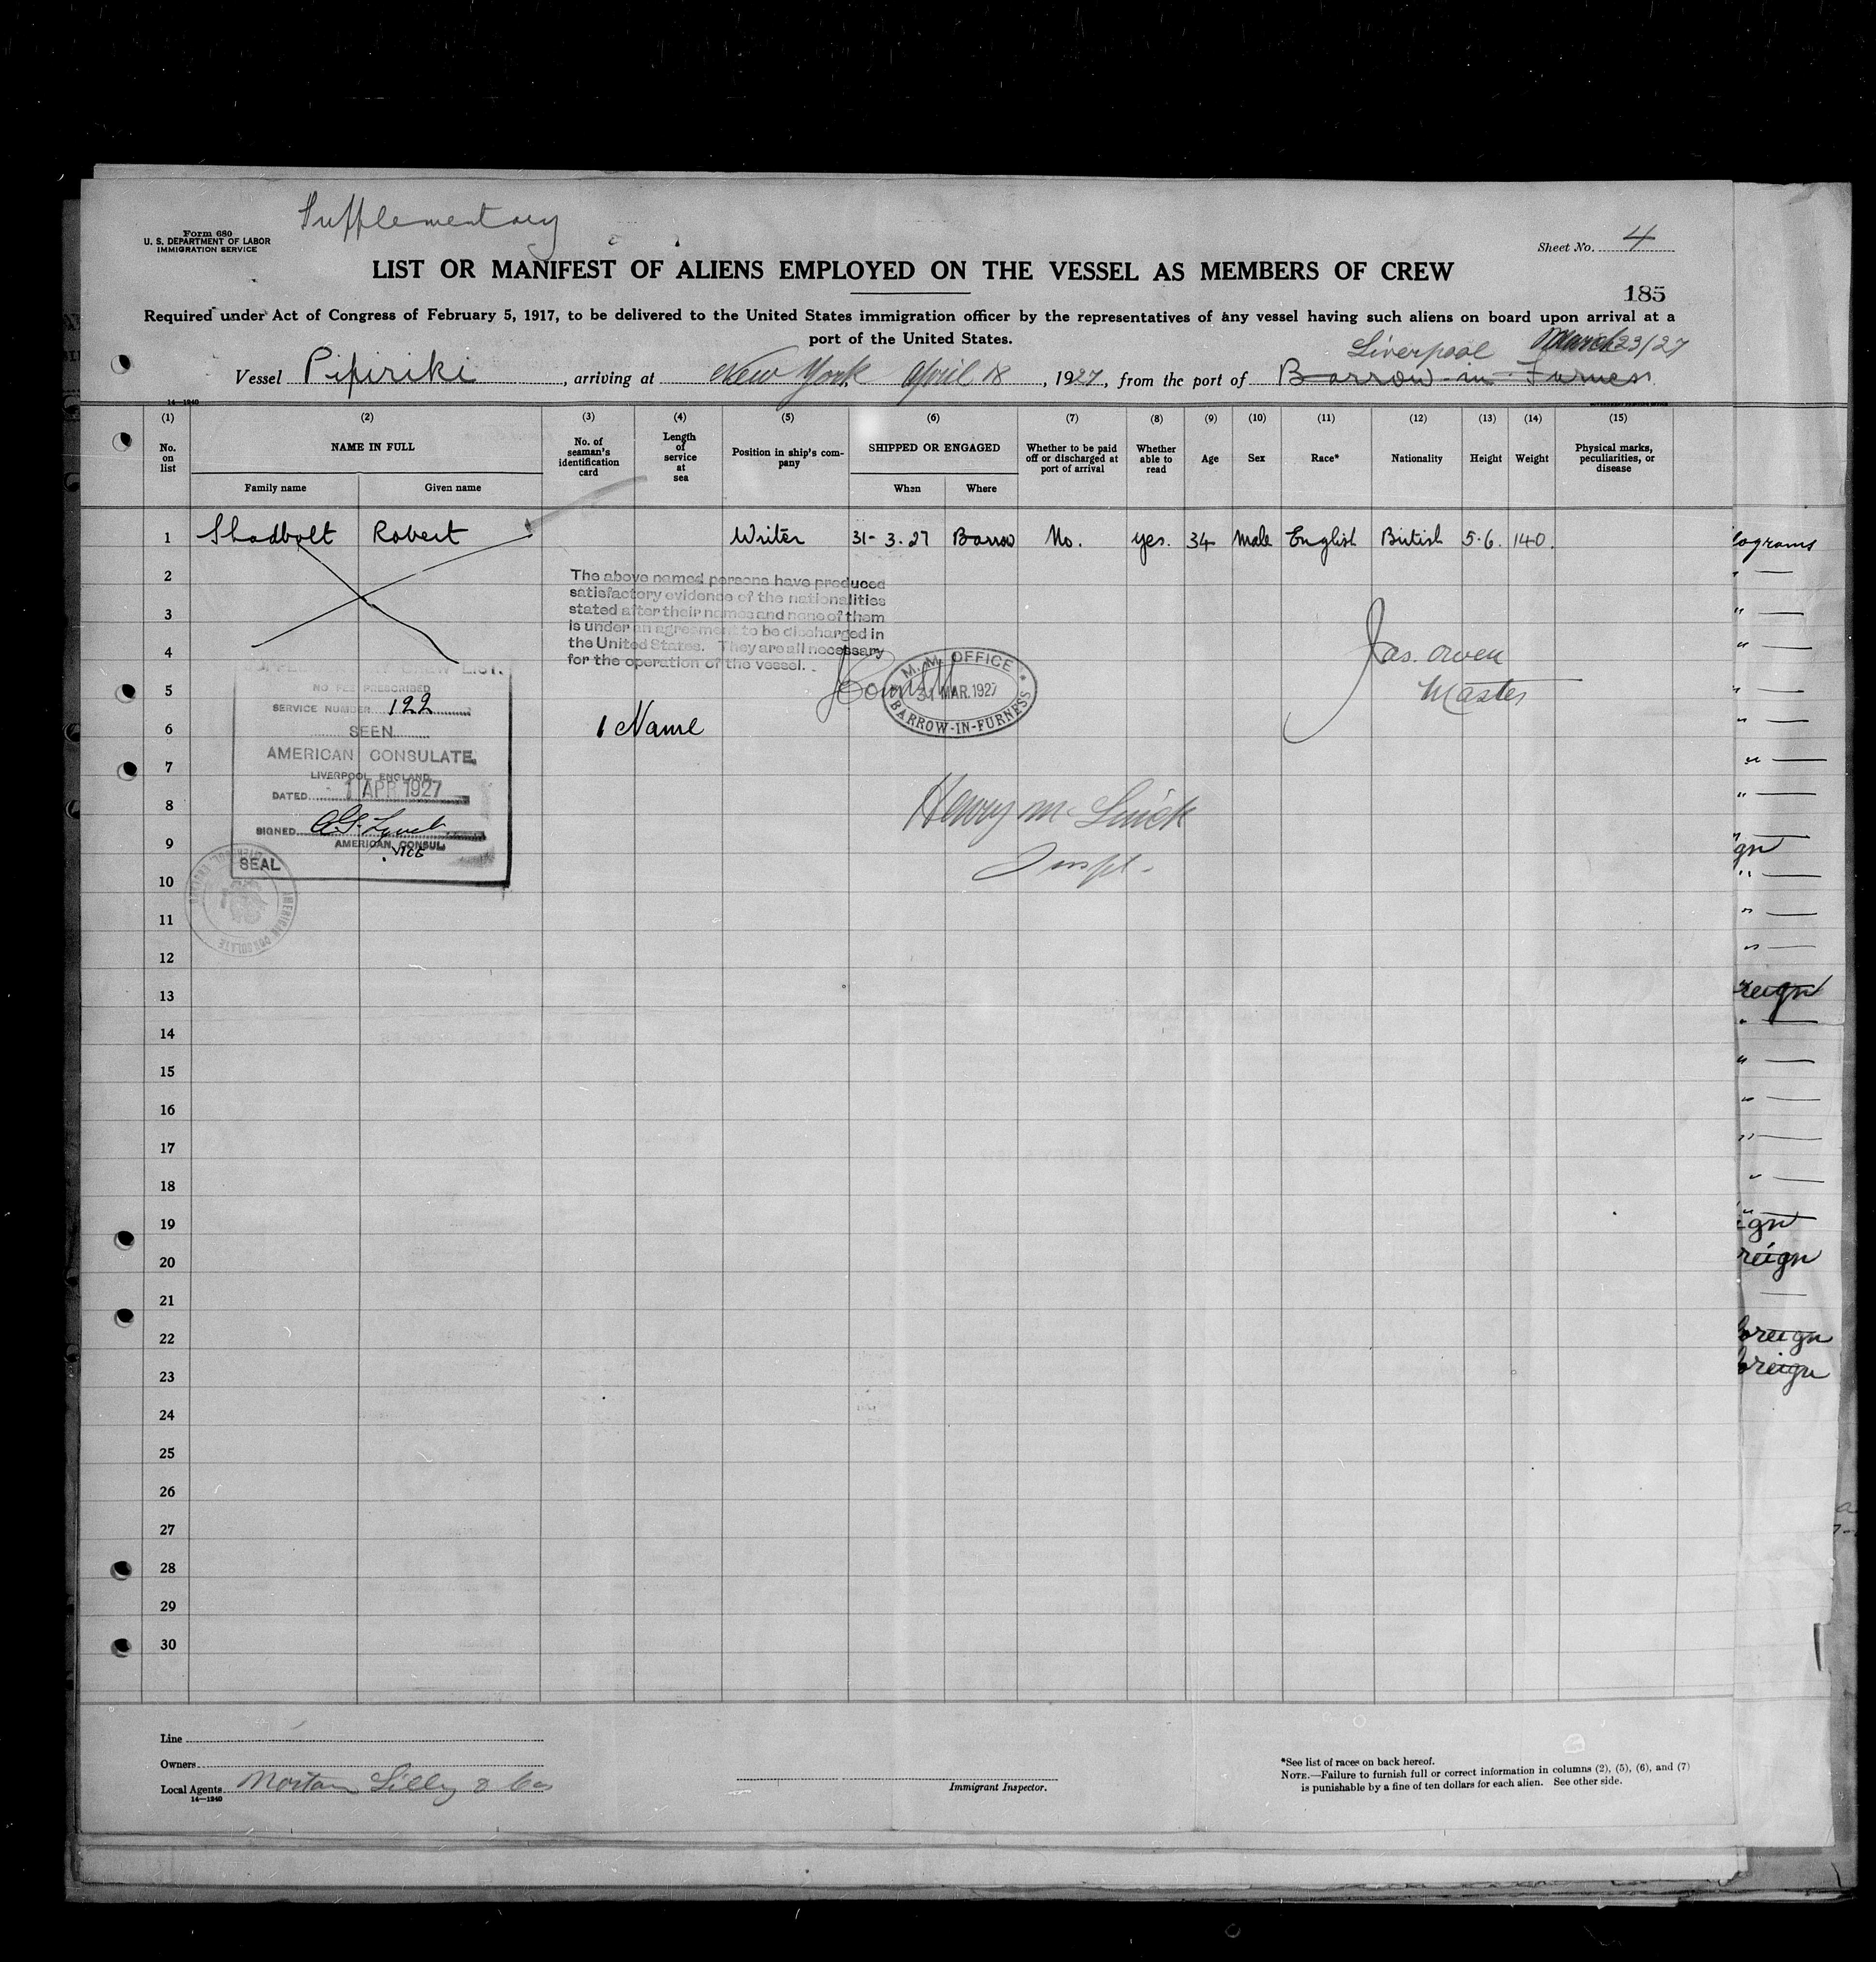 Supplementary
Form 680
U. S. DEPARTMENT OF LABOR
IMMIGRATION SERVICE
Sheet No. 4
LIST OR MANIFEST OF ALIENS EMPLOYED ON THE VESSEL AS MEMBERS OF CREW
185
Required under Act of Congress of February 5, 1917, to be delivered to the United States immigration officer by the representatives of any vessel having such aliens on board upon arrival at a
port of the United States.
Liverpool March 23/27
Vessel Pipiriki, arriving at New York April 18, 1927, from the port of Barrow-in-Furness
14—1240
(1) (2) (3) (4) (5) (6) (7) (8) (9) (10) (11) (12) (13) (14) (15)
No. on list
NAME IN FULL
Family name
Given name
No. of seaman's identification card
Length of service at sea
Position in ship's company
SHIPPED OR ENGAGED
When
Where
Whether to be paid off or discharged at port of arrival
Whether able to read
Age
Sex
Race*
Nationality
Height
Weight
Physical marks, peculiarities, or disease
1 Shadbolt Robert Writer 31-3.27 Barrow No. yes. 34 Male English British 5.6. 140.
The above named persons have produced
satisfactory evidence of the nationalities
stated after their names and none of them
is under an agreement to be discharged in
the United States. They are all necessary
for the operation of the vessel.
M. M. OFFICE
31 MAR. 1927
BARROW-IN-FURNESS
Jas. Owen
Master
1 Name
NO FEE PRESCRIBED
SERVICE NUMBER 122
SEEN
AMERICAN CONSULATE
LIVERPOOL, ENGLAND.
DATED 1 APR 1927
SIGNED
AMERICAN CONSUL
VICE
SEAL
AMERICAN CONSULATE
Henry
Inspt.
2
3
4
5
6
7
8
9
10
11
12
13
14
15
16
17
18
19
20
21
22
23
24
25
26
27
28
29
30
lograms
gn
reign
ign
reign
oreign
oreign
Line
Owners
Local Agents Norton Lilly & Co
14—1240
Immigrant Inspector.
*See list of races on back hereof.
NOTE.—Failure to furnish full or correct information in columns (2), (5), (6), and (7)
is punishable by a fine of ten dollars for each alien. See other side.